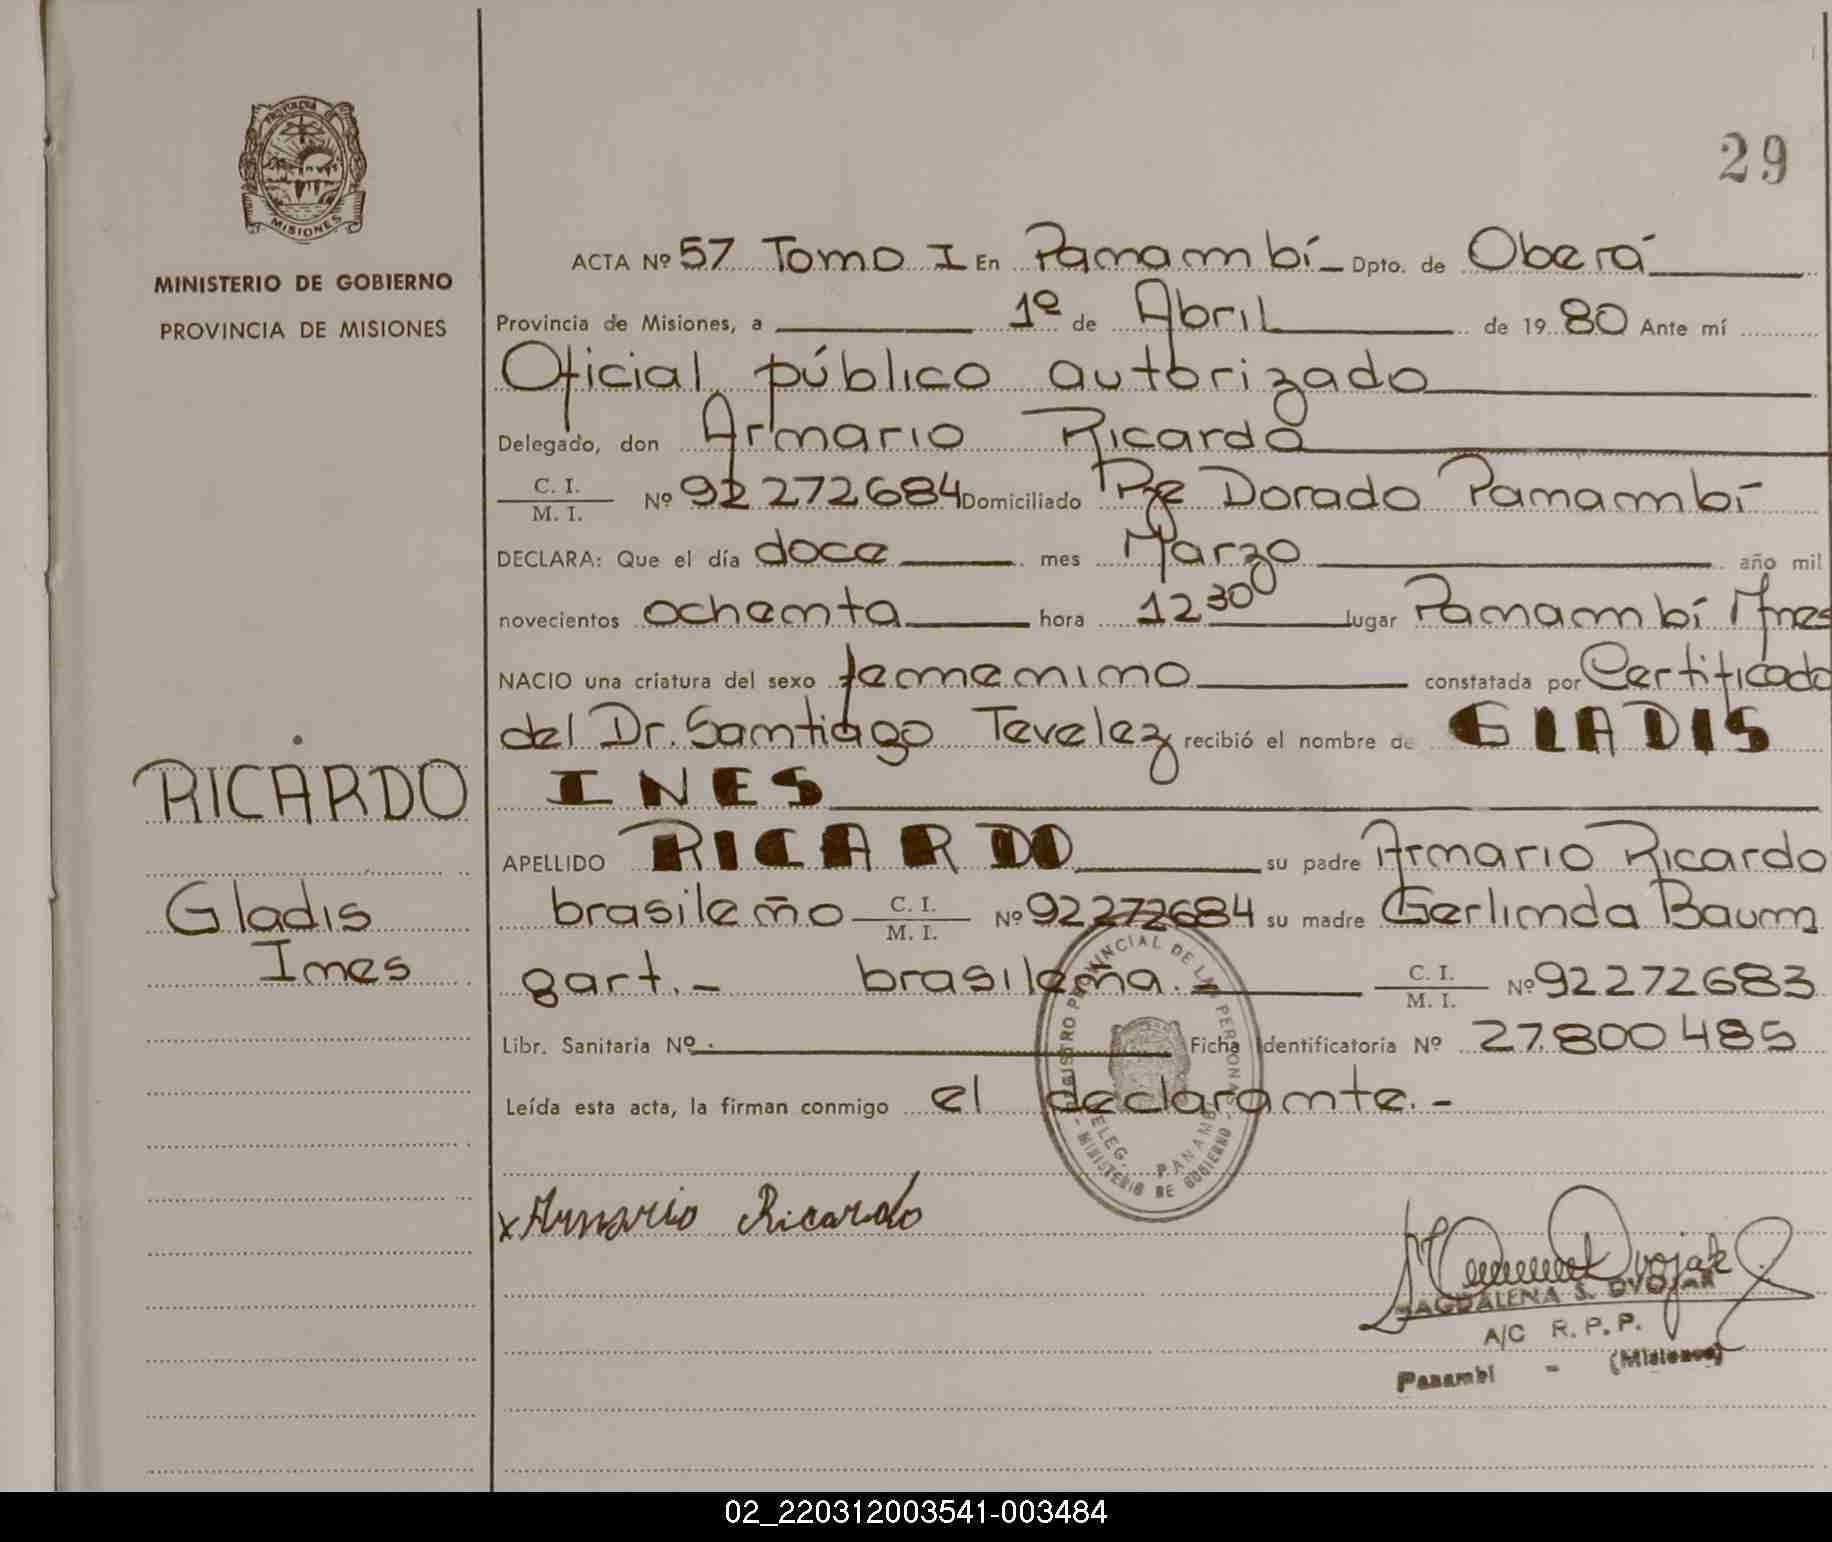 29
PROVINCIA DE
MISIONES
MINISTERIO DE GOBIERNO
PROVINCIA DE MISIONES
RICARDO
Gladis
Ines
ACTA Nº 57 Tomo I En Panambí Dpto. de Oberá
Provincia de Misiones, a 1º de Abril de 19 80 Ante mí
Oficial público autorizado
Delegado, don Armario Ricardo
C. I. / M. I. Nº 92 272684 Domiciliado Pje Dorado Panambí
DECLARA: Que el día doce mes Marzo año mil
novecientos ochenta hora 12 30 lugar Panambí Mnes
NACIO una criatura del sexo femenino constatada por Certificado
del Dr. Santiago Tevelez recibió el nombre de GLADIS
INES
APELLIDO RICARDO su padre Armario Ricardo
brasileño C. I. / M. I. Nº 92272684 su madre Gerlinda Baum
gart.- brasileña.- C. I. / M. I. Nº 92272683
Libr. Sanitaria Nº Ficha Identificatoria Nº 27.800 485
Leída esta acta, la firman conmigo el declarante.-
REGISTRO PROVINCIAL DE LA PERSONA
DELEG. PANAMBI
- MINISTERIO DE GOBIERNO -
x Armario Ricardo
Dvojak
MAGDALENA S. DVOJAK
A/C R. P. P.
Panambí - (Misiones)
02_220312003541-003484